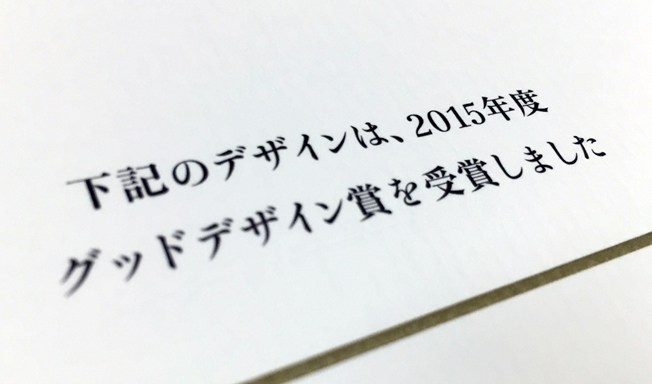 下記のデザインは、2015年度
グッドデザイン賞を受賞しました